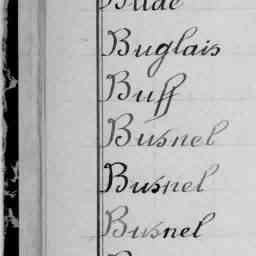 Buglais
Buff
Busnel
Busnel
Busnel